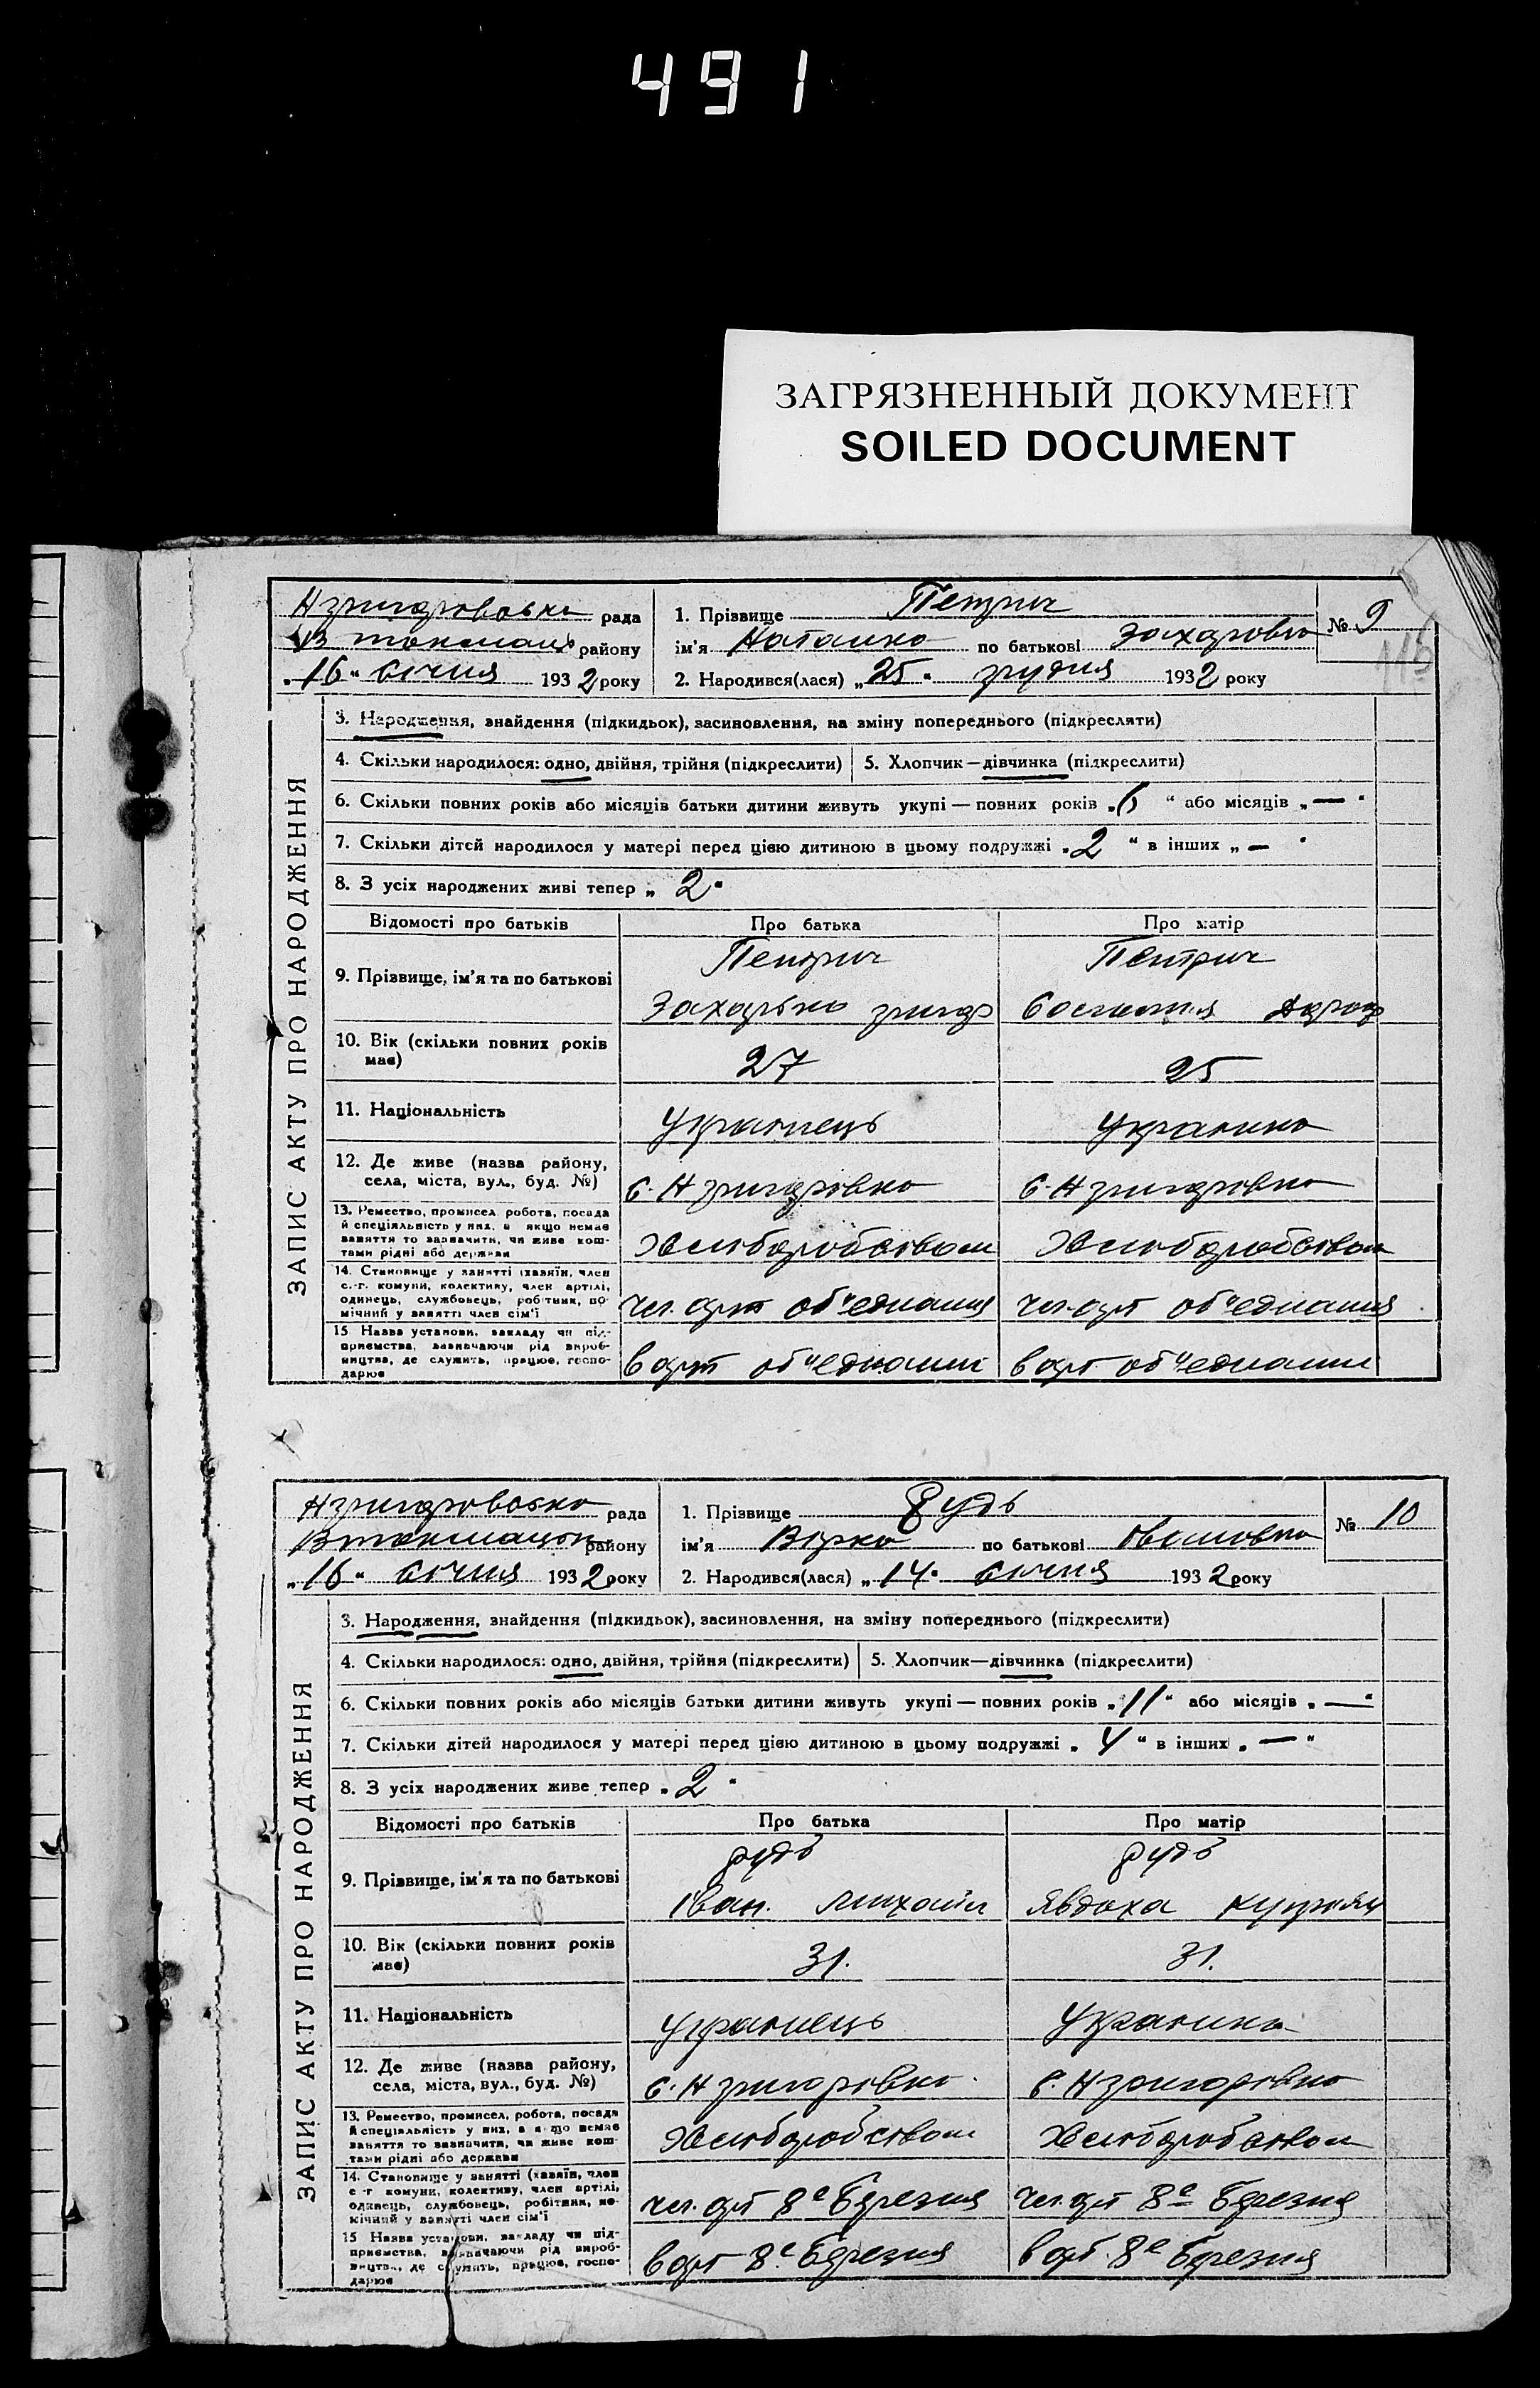 491
ЗАГРЯЗНЕННЫЙ ДОКУМЕНТ
SOILED DOCUMENT
Н григоровська рада
району
„16“ січня 1932 року
1. Прізвище Петрич
ім'я Наталка по батькові Захаровна
2. Народився(лася) „25“ грудня 1932 року
№ 9
115
ЗАПИС АКТУ ПРО НАРОДЖЕННЯ
3. Народження, знайдення (підкидьок), засиновлення, на зміну попереднього (підкреслити)
4. Скільки народилося: одно, двійня, трійня (підкреслити)
5. Хлопчик—дівчинка (підкреслити)
6. Скільки повних років або місяців батьки дитини живуть укупі — повних років „6“ або місяців „—“
7. Скільки дітей народилося у матері перед цією дитиною в цьому подружжі „2“ в інших „—“
8. З усіх народжених живі тепер „2“
Відомості про батьків Про батька Про матір
9. Прізвище, ім'я та по батькові
Петрич Петрич
Захарько григор
10. Вік (скільки повних років має) 27 25
11. Національність Українець Українка
12. Де живе (назва району,
села, міста, вул., буд. №) с. Н григорівка с. Н григорівка
13. Ремество, промисел, робота, посада
й спеціяльність у них, а якщо немає
заняття то зазначити, чи живе кош-
тами рідні або держави
Хлиборобством Хлиборобством
14. Становище у занятті (хазяїн, член
с.-г. комуни, колективу, член артілі,
одинець, службовець, робітник, по-
мічний у занятті член сім'ї
чл. арт об'єднання чл. арт об'єднання
15 Назва установи, закладу чи під-
приємства, зазначаючи рід вироб-
ництва, де служить, працює, госпо-
дарює
в арт об'єднанні в арт об'єднанні
Н григоровська рада
району
„16“ січня 1932 року
1. Прізвище Рудь
ім'я Вірка по батькові Івановна
2. Народився(лася) „14“ січня 1932 року
№ 10
ЗАПИС АКТУ ПРО НАРОДЖЕННЯ
3. Народження, знайдення (підкидьок), засиновлення, на зміну попереднього (підкреслити)
4. Скільки народилося: одно, двійня, трійня (підкреслити)
5. Хлопчик—дівчинка (підкреслити)
6. Скільки повних років або місяців батьки дитини живуть укупі — повних років „11“ або місяців „—“
7. Скільки дітей народилося у матері перед цією дитиною в цьому подружжі „4“ в інших „—“
8. З усіх народжених живе тепер „2“
Відомості про батьків Про батька Про матір
9. Прізвище, ім'я та по батькові
рудь рудь
Іван. Михайл Явдоха Купріян
10. Вік (скільки повних років має) 31. 31.
11. Національність Українець Українка
12. Де живе (назва району,
села, міста, вул., буд. №) с. Н григорівка с. Н григорівка
13. Ремество, промисел, робота, посада
й спеціяльність у них, а якщо немає
заняття то зазначити, чи живе кош-
тами рідні або держави
Хлиборобством Хлиборобством
14. Становище у занятті (хазяїн, член
с.-г комуни, колективу, член артілі,
одинець, службовець, робітник, по-
мічний у занятті член сім'ї
чл. арт 8е Березня чл. арт 8е Березня
15 Назва установи, закладу чи під-
приємства, зазначаючи рід вироб-
ництва, де служить, працює, госпо-
дарює
в арт 8е Березня в арт 8е Березня